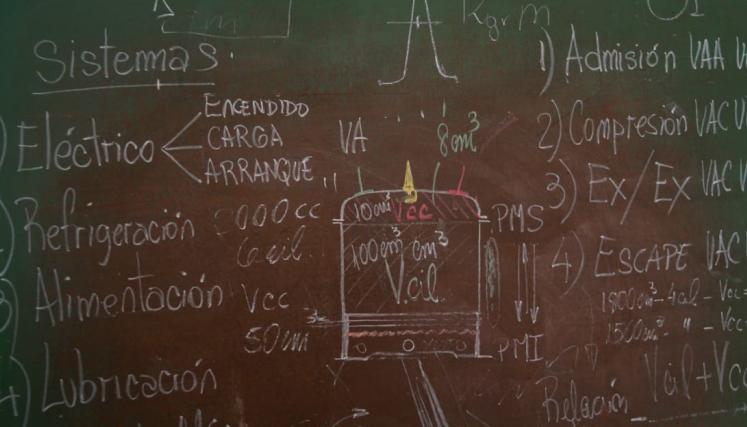 Kgrm
Sistemas
Eléctrico
ENCENDIDO
CARGA
ARRANQUE
Refrigeración
Alimentación
Lubricación
2000cc
6 cil.
Vcc
50cm
VA
8cm³
10cm³ Vcc
100cm³ cm³
Vcil.
PMS
PMI
1) Admisión VAA
2) Compresión VACV
3) Ex/Ex VAC
4) ESCAPE VAC
1800cm³-4cil-Vcc=
1500cm³ " -Vcc
Relación Vcil+Vcc